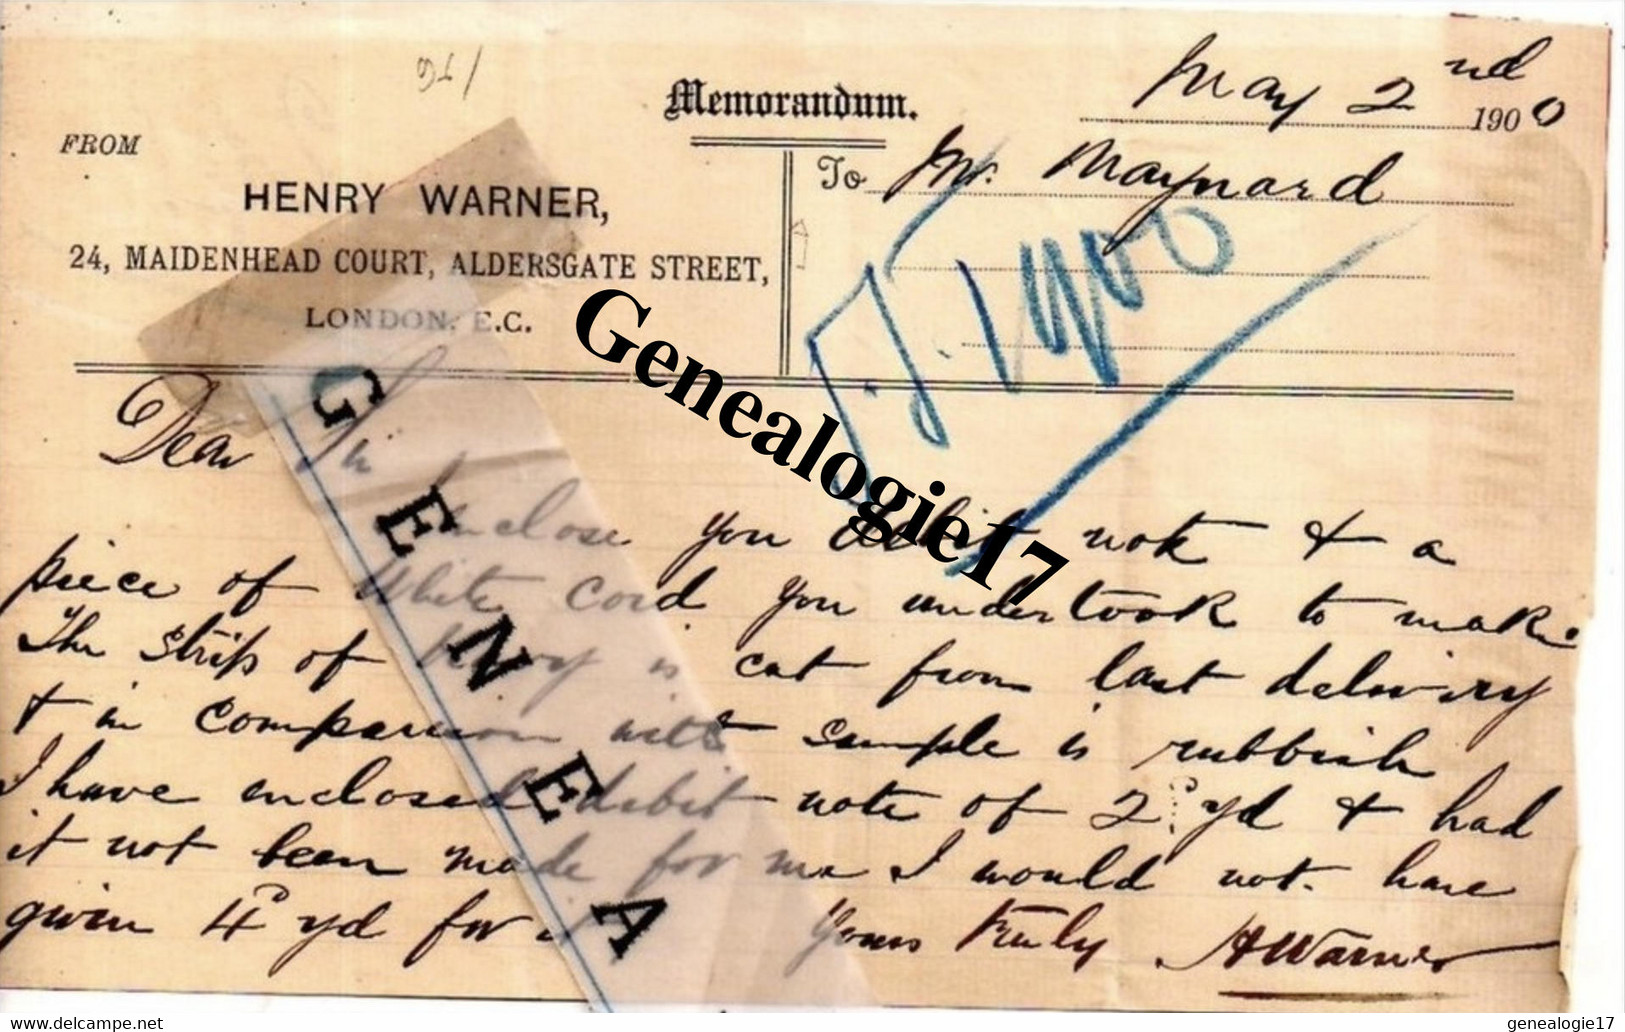 96/
Memorandum.
May 2nd 1900
FROM
To Mr. Maynard
HENRY WARNER,
24, MAIDENHEAD COURT, ALDERSGATE STREET,
LONDON, E.C.
1900
Dear Sir
Enclose you debit note & a
piece of White Cord you undertook to make.
The strip of is cut from last delivery
& in comparison with sample is rubbish
I have enclosed debit note of 2D yd & had
it not been made for me I would not have
given 4D yd for it Yours Truly HWarner
Genealogie17
GENEA
www.delcampe.net
genealogie17